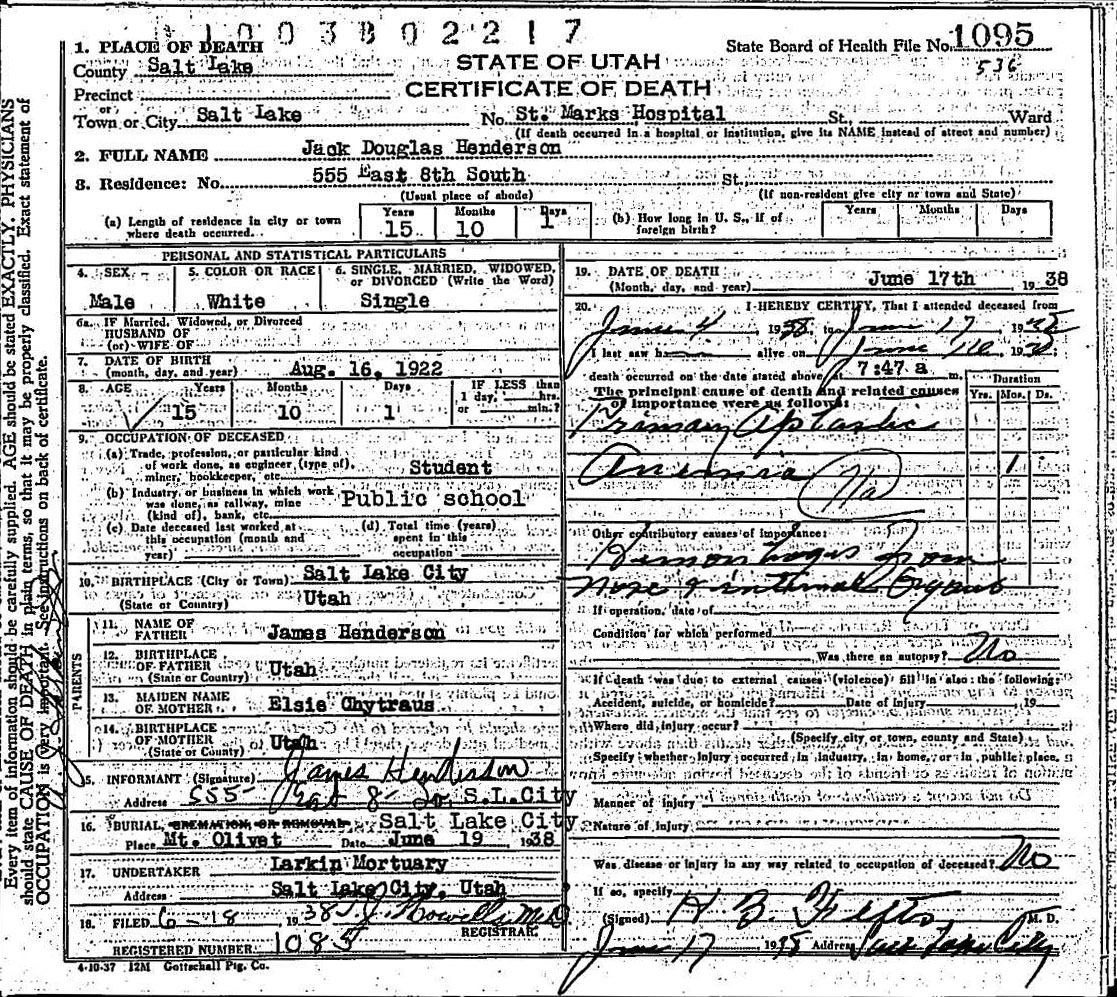 1003802217
1. PLACE OF DEATH
State Board of Health File No. 1095
County Salt Lake
STATE OF UTAH
536
Precinct
CERTIFICATE OF DEATH
or
Town or City Salt Lake No. St. Marks Hospital St., Ward
(If death occurred in a hospital or institution, give its NAME instead of street and number)
2. FULL NAME Jack Douglas Henderson
3. Residence: No. 555 East 8th South St.
(Usual place of abode) (If non-resident give city or town and State)
(a) Length of residence in city or town where death occurred. Years 15 Months 10 Days 1
(b) How long in U. S., if of foreign birth? Years Months Days
PERSONAL AND STATISTICAL PARTICULARS
4. SEX
Male
5. COLOR OR RACE
White
6. SINGLE, MARRIED, WIDOWED,
or DIVORCED (Write the Word)
Single
6a. IF Married, Widowed, or Divorced
HUSBAND OF
(or) WIFE OF
7. DATE OF BIRTH
(month, day, and year) Aug. 16, 1922
8. AGE Years 15 Months 10 Days 1
IF LESS than
1 day, hrs.
or min.?
9. OCCUPATION OF DECEASED
(a) Trade, profession, or particular kind
of work done, as engineer (type of),
miner, bookkeeper, etc. Student
(b) Industry, or business in which work
was done, as railway, mine
(kind of), bank, etc. Public school
(c) Date deceased last worked at
this occupation (month and
year)
(d) Total time (years)
spent in this
occupation
10. BIRTHPLACE (City or Town) Salt Lake City
(State or Country) Utah
PARENTS
11. NAME OF
FATHER James Henderson
12. BIRTHPLACE
OF FATHER
(State or Country) Utah
13. MAIDEN NAME
OF MOTHER Elsie Chytraus
14. BIRTHPLACE
OF MOTHER
(State or County) Utah
15. INFORMANT (Signature) James Henderson
Address 555 East 8 So. S.L.City
16. BURIAL, CREMATION, OR REMOVAL Salt Lake City
Place Mt. Olivet Date June 19 1938
17. UNDERTAKER Larkin Mortuary
Address Salt Lake City, Utah
18. FILED 6-18 1938 Howells M.D.
REGISTRAR
REGISTERED NUMBER 1085
4-10-37 12M Gottschall Ptg. Co.
19. DATE OF DEATH
(Month, day, and year) June 17th 1938
20. I HEREBY CERTIFY, That I attended deceased from
June 4 1938 to June 17 1938
I last saw h alive on June 16 1938;
death occurred on the date stated above at 7:47 a m.
The principal cause of death and related causes
of importance were as follows:
Duration
Yrs. Mos. Ds.
Primary Aplastic
Anemia 1
Other contributory causes of importance:
Hemorrhages from
nose & internal organs
If operation, date of
Condition for which performed
Was there an autopsy? No
If death was due to external causes (violence) fill in also the following:
Accident, suicide, or homicide? Date of injury , 19
Where did injury occur?
(Specify city or town, county and State)
Specify whether injury occurred in industry, in home, or in public place.
Manner of injury
Nature of injury
Was disease or injury in any way related to occupation of deceased? No
If so, specify
(Signed) H. B. M. D.
June 17 1938 Address Salt Lake City
Every item of information should be carefully supplied. AGE should be stated EXACTLY. PHYSICIANS
should state CAUSE OF DEATH in plain terms, so that it may be properly classified. Exact statement of
OCCUPATION is very important. See instructions on back of certificate.